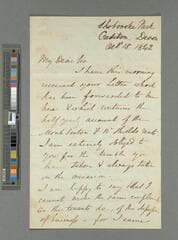 Shobrooke Park
Crediton, Devon
Oct 18 1842
My Dear Sir
I have this morning
received your letter which
has been forwarded to me
here & which contains the
half year account of the
I am extremely obliged to
you for the trouble you
have taken & always take
on the occasion
I am happy to say that I
cannot make the same complaint